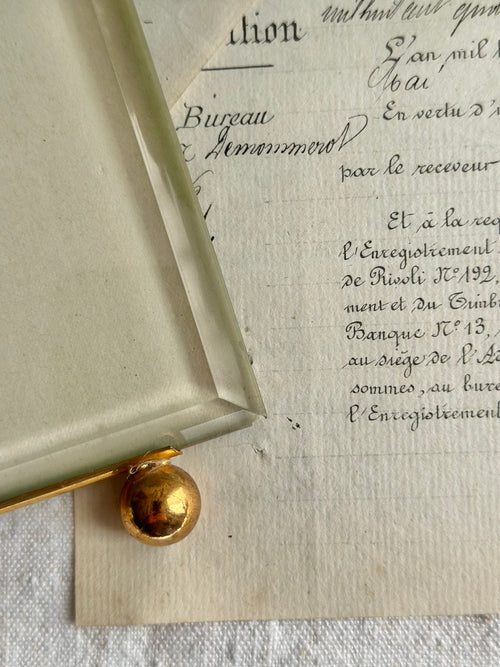 mil huit cent qua
ition
L'an mil
Mai
Bureau
En vertu d'u
Demommerot
par le receveur
Et à la req
l'Enregistrement
de Rivoli N° 192,
ment et du Timb
Banque N° 13,
au siège de l'A
sommes, au bure
l'Enregistrement